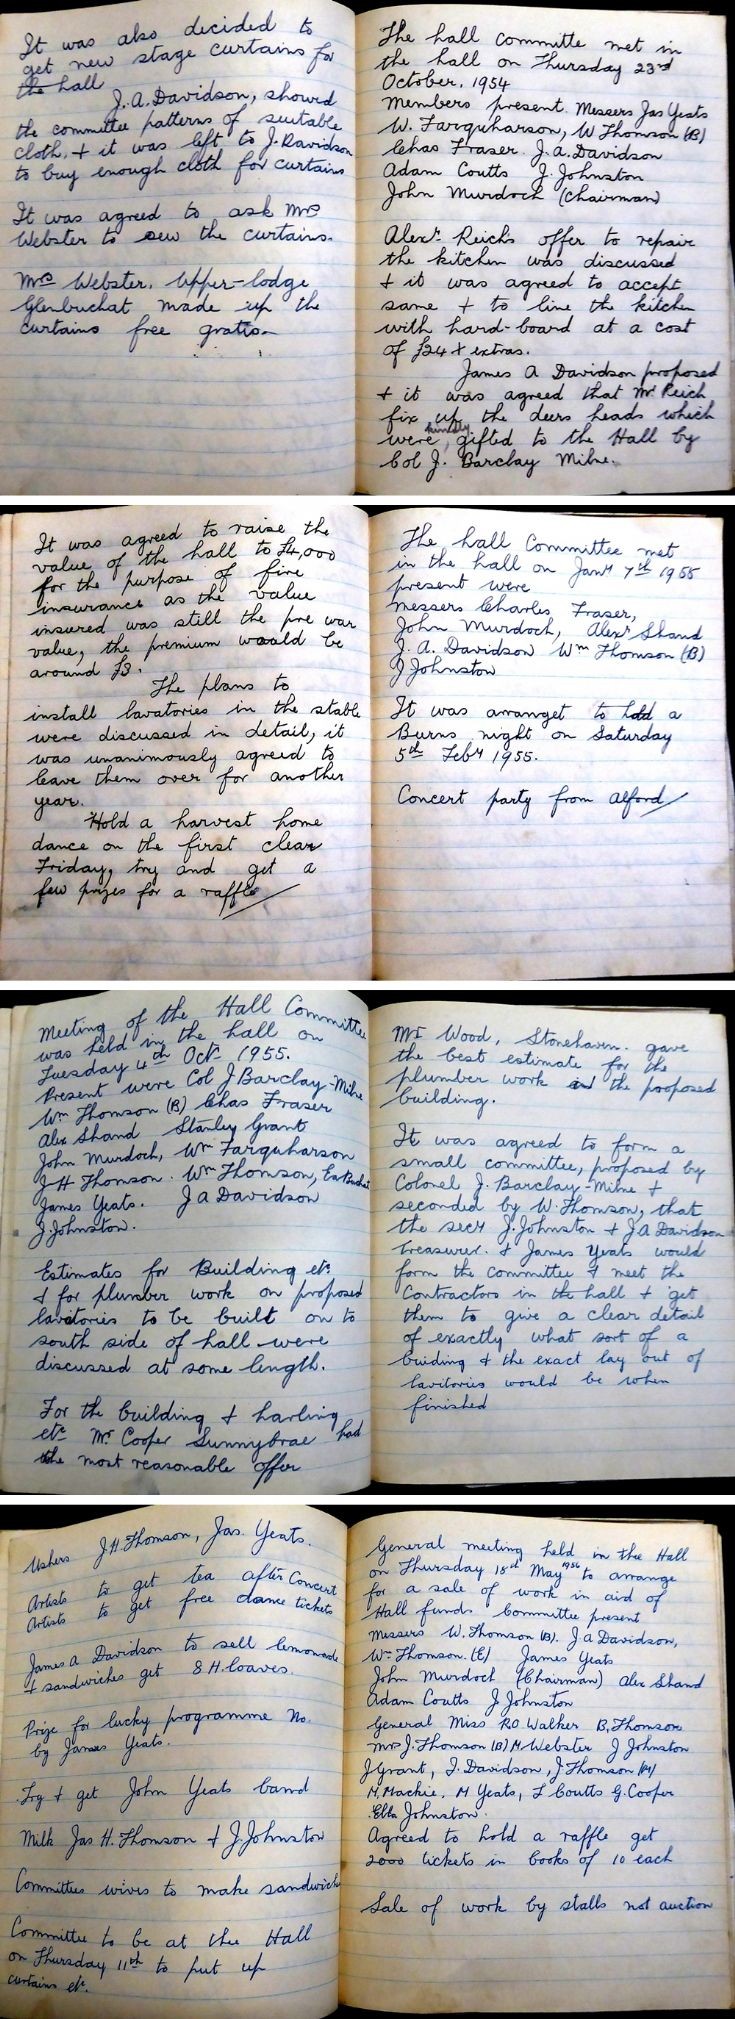 It was also decided to
get new stage curtains for
the hall
J. A. Davidson, showed
the committee patterns of suitable
cloth, + it was left to J. Davidson
to buy enough cloth for curtains
It was agreed to ask Mrs
Webster to sew the curtains.
Mrs Webster, Upper-lodge
Glenbuchat made up the
curtains free gratis.
The hall committe met in
the hall on Thursday 23rd
October, 1954
Members present. Messers Jas Yeats
W. Farquharson, W Thomson (B)
Chas Fraser. J. A. Davidson
Adam Coutts J. Johnston
John Murdoch (Chairman)
Alexr. Reichs offer to repair
the kitchen was discussed
+ it was agreed to accept
same + to line the kitchen
with hard-board at a cost
of £24 + extras.
James A Davidson proposed
+ it was agreed that Mr Reich
fix up the deers heads which
were kindly gifted to the Hall by
Col J. Barclay Milne.
It was agreed to raise the
value of the hall to £4,000
for the purpose of fire
insurance as the value
insured was still the pre war
value, the premium would be
around £3.
The plans to
install lavatories in the stable
were discussed in detail, it
was unanimously agreed to
leave them over for another
year.
Hold a harvest home
dance on the first clear
Friday, try and get a
few prizes for a raffle
The hall Committee met
in the hall on Jany 7th 1955
present were
Messers Charles Fraser,
John Murdoch, Alexr Shand
J. A. Davidson Wm Thomson (B)
J Johnston
It was arranget to hold a
Burns night on Saturday
5th Feby 1955.
Concert party from Alford
Meeting of the Hall Committee
was held in the hall on
Tuesday 4th Oct. 1955.
Present were Col J Barclay-Milne
Wm Thomson (B) Chas Fraser
Alex Shand Stanley Grant
John Murdoch, Wm Farquharson
J H Thomson. Wm Thomson,
James Yeats. J A Davidson
J. Johnston.
Estimates for Building etc
+ for plumber work on proposed
lavatories to be built on to
south side of hall were
discussed at some length.
For the building + harling
etc Mr Cooper Sunnybrae had
the most reasonable offer
Mr Wood, Stonehaven. gave
the best estimate for the
plumber work the proposed
building.
It was agreed to form a
small committee, proposed by
Colonel J. Barclay-Milne +
seconded by W. Thomson, that
the secy J. Johnston + J A Davidson
treasurer. + James Yeats would
form the committee + meet the
Contractors in the hall + get
them to give a clear detail
of exactly what sort of a
buiding + the exact lay out of
lavitories would be when
finished
Ushers J. H. Thomson, Jas. Yeats.
Artists to get tea after Concert
Artists to get free dance tickets
James A Davidson to sell lemonade
+ sandwiches get 8 H. loaves.
Prize for lucky programme No.
by James Yeats.
Try + get John Yeats band
Milk Jas H. Thomson + J. Johnston
Committes wives to make sandwiches
Committee to be at the Hall
on Thursday 11th to put up
curtains etc.
General meeting held in the Hall
on Thursday 18th May 1956 to arrange
for a sale of work in aid of
Hall funds Committee present
Messers W. Thomson (B). J A Davidson,
Wm Thomson. (E) James Yeats
John Murdoch (Chairman) Alex Shand
Adam Coutts J Johnston
General Miss R.O. Walker B, Thomson
Mrs J. Thomson (B) M. Webster J Johnston
J Grant, J. Davidson, J Thomson (M)
M. Mackie, M Yeats, L Coutts G. Cooper
Ella Johnston.
Agreed to hold a raffle get
2000 tickets in books of 10 each
Sale of work by stalls not auction